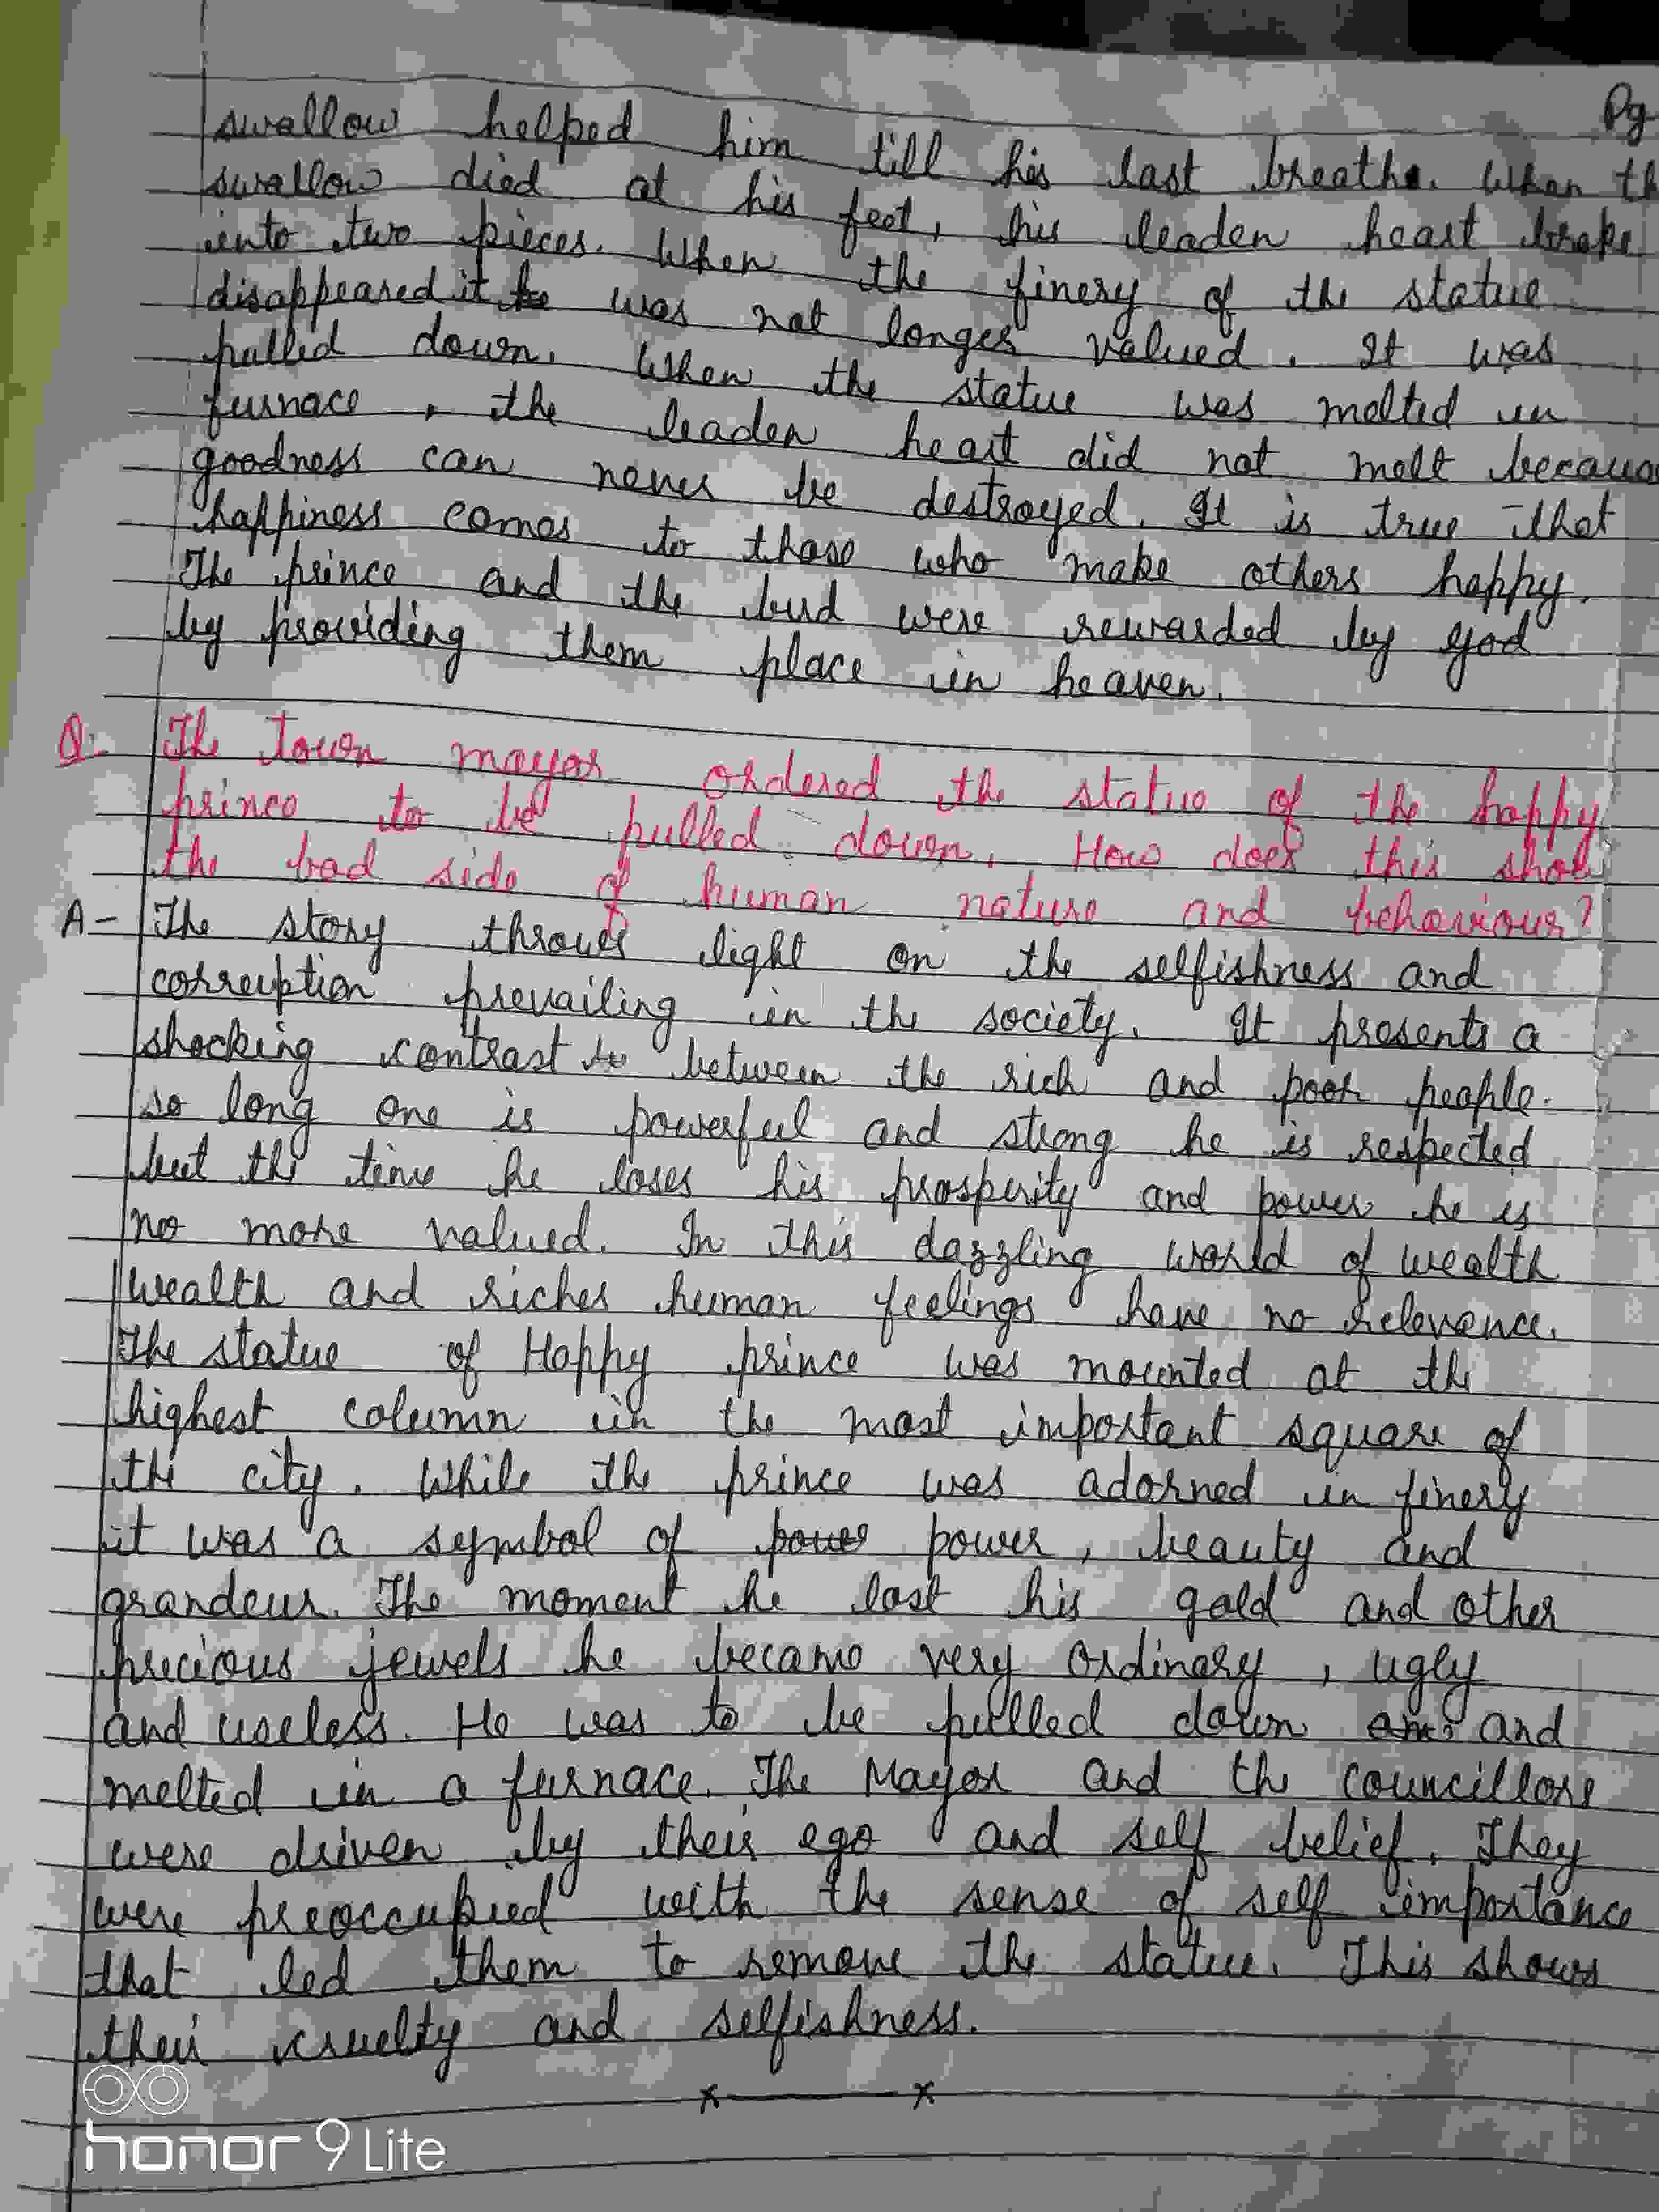 Pg
swallow helped him till his last breath. When th
swallow died at his feet, his leaden heart broke
into two pieces. When the finery of the statue
disappeared it was not longer valued. It was
pulled down. When the statue was melted in
furnace, the leaden heart did not melt becaus
goodness can never be destroyed. It is true that
happiness comes to those who make others happy.
The prince and the bird were rewarded by god
by providing them place in heaven.
Q- The town mayor ordered the statue of the happy
prince to be pulled down. How does this show
the bad side of human nature and behaviour?
A- The story throws light on the selfishness and
corruption prevailing in the society. It presents a
shocking contrast between the rich and poor people.
so long one is powerful and strong he is respected
but the time he loses his prosperity and power he is
no more valued. In this dazzling world of wealth
wealth and riches human feelings have no relevence.
The statue of Happy prince was mounted at the
highest column in the most important square of
the city. While the prince was adorned in finery
it was a symbol of power, beauty and
grandeur. The moment he lost his gold and other
precious jewels he became very ordinary, ugly
and useless. He was to be pulled down and
melted in a furnace. The Mayor and the councillors
were driven by their ego and self belief. They
were preoccupied with the sense of self importance
that led them to remove the statue. This shows
their cruelty and selfishness.
x——x
honor 9 Lite